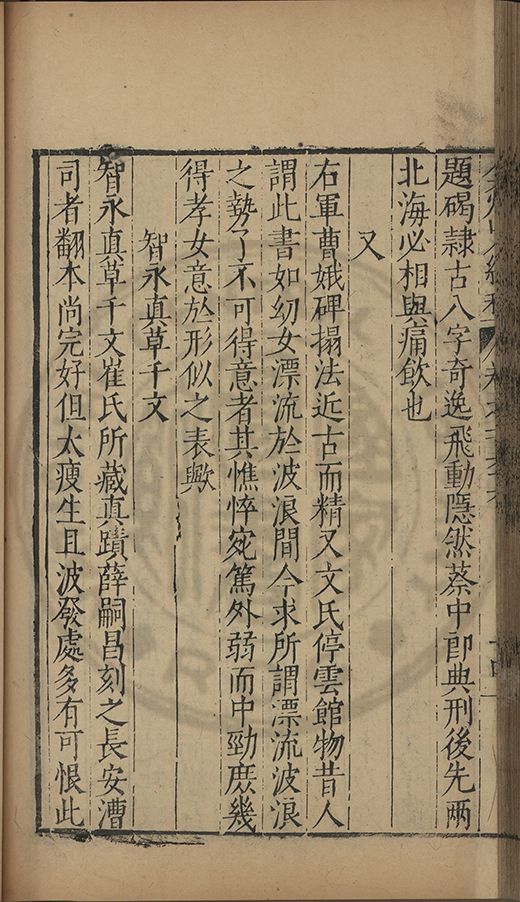 題碣隷古八字奇逸飛動隱然蔡中郎典刑後先兩
北海必相與痛飲也
又
右軍曹娥碑搨法近古而精又文氏停雲館物昔人
謂此書如幼女漂流於波浪間今求所謂漂流波浪
之勢了不可得意者其憔悴宛篤外弱而中勁庶幾
得孝女意於形似之表歟
智永真草千文
智永真草千文崔氏所藏真蹟薛嗣昌刻之長安漕
司者翻本尚完好但太瘦生且波發處多有可恨此